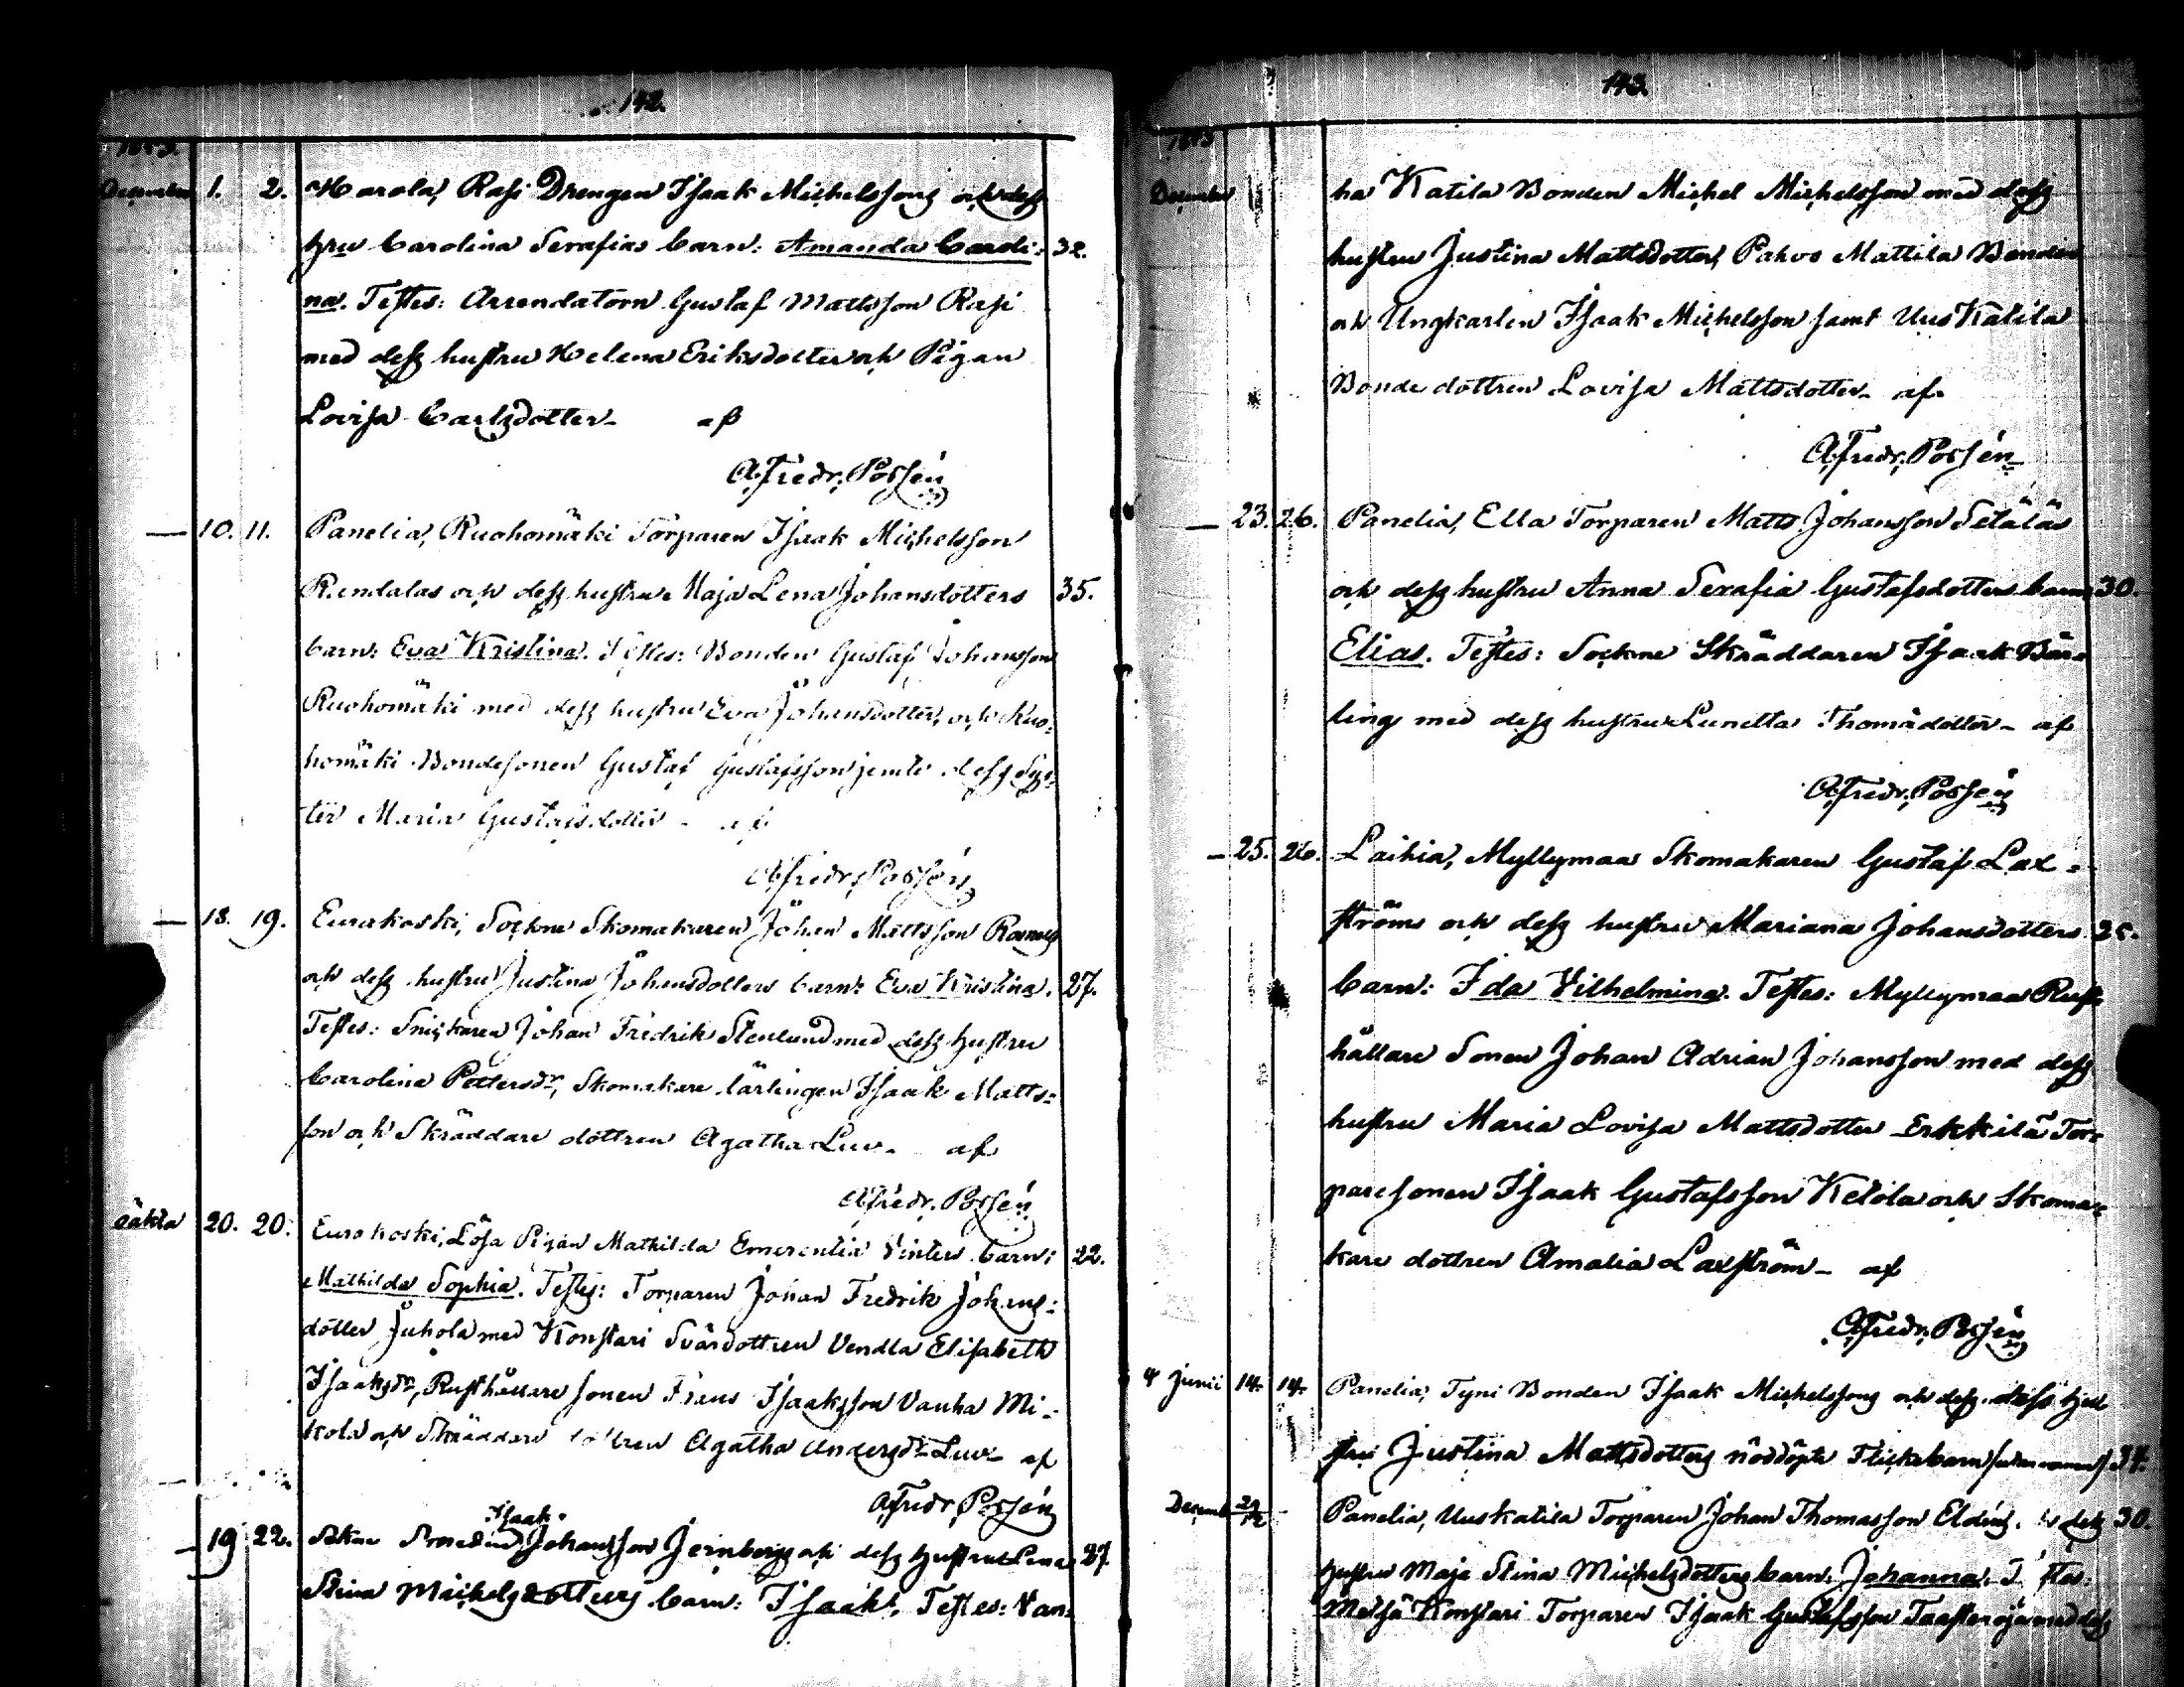 142.
1853.
December 1. 2. Harola, Rasi Drengen Isaak Michelssons och dess
hru Carolina Serafias barn: Amanda Caroli- 32.
na. Testes: Arrendatorn Gustaf Mattsson Rasi
med dess hustru Helena Eriksdotter och Pigan
Lovisa Carlsdotter - af
A. Fredr. Possén
— 10. 11. Panelia, Ruohomäki Torparen Isaak Michelsson
Rendalas och dess hustru Maja Lena Johansdotters 35.
barn: Eva Kristina. Testes: Bonden Gustaf Johansson
Ruohomäki med dess hustru Eva Johansdotter, och Ruo-
homäki Bondesonen Gustaf Gustafsson jemte dess Sys-
ter Maria Gustafsdotter - af
A. Fredr. Possén
— 18. 19. Eurakoski, Sockne Skomakaren Johan Mattsson
och dess hustru Justina Johansdotters barn: Eva Kristina. 27.
Testes: Snickaren Johan Fredrik Stenlund med dess hustru
Carolina Pettersdr, Skomakare lärlingen Isaak Matts-
son och Skräddare dottren Agatha Luv- af
A. Fredr. Possén
oäkta 20. 20. Eurakoski, Lösa Pigan Mathilda Emerentia Vinters barn: 22.
Mathilda Sophia. Testes: Torparen Johan Fredrik Johans-
dotter Juhola med Konstari Svärdottren Vendla Elisabeth
Isaaksdr, Rusthållare sonen Frans Isaaksson Vanha Mi-
kola och Skräddare dottren Agatha Andersdr Luv- af
A. Fredr. Possén
Isaak
— 19 22. Sokne Smeden Johansson Jernbergs och dess hustru Lena 27.
Stina Michelsdotters barn: Isaak. Testes: Van-
143.
1853
December ha Katila Bonden Michel Michelsson med dess
hustru Justina Mattsdotter, Pahvo Mattila Bonden
och Ungkarlen Isaak Michelsson samt Uus Katila
Bonde dottren Lovisa Mattsdotter - af
A. Fredr. Possén
— 23. 26. Panelia, Ella Torparen Matts Johansson Setäläs
och dess hustru Anna Serafia Gustafsdotters barn 30.
Elias. Testes: Sockne Skräddaren Isaak Bär-
ling med dess hustru Lunetta Thomasdotter - af
A. Fredr. Possén
— 25. 26. Laihia, Myllymaa Skomakaren Gustaf Lax-
ströms och dess hustru Mariana Johansdotters 25.
barn: Ida Vilhelmina. Testes: Myllymaa Rust-
hållare Sonen Johan Adrian Johansson med dess
hustru Maria Lovisa Mattsdotter Erkkilä Tor-
paresonen Isaak Gustafsson Ketola och Skoma-
kare dottren Amalia Laxström - af
A. Fredr. Possén
4 Junii 14. 14. Panelia, Tyni Bonden Isaak Michelssons och dess dess hu-
stru Justina Mattsdotters nöddöpte Flickebarn (utan namn) 34.
Decemb 29/12 - Panelia, Uuskatila Torparen Johan Thomasson dess 30.
hustru Maja Stina Michelsdotters barn: Johanna. Testes:
Metsä Konstari Torparen Isaak Gustafsson med dess